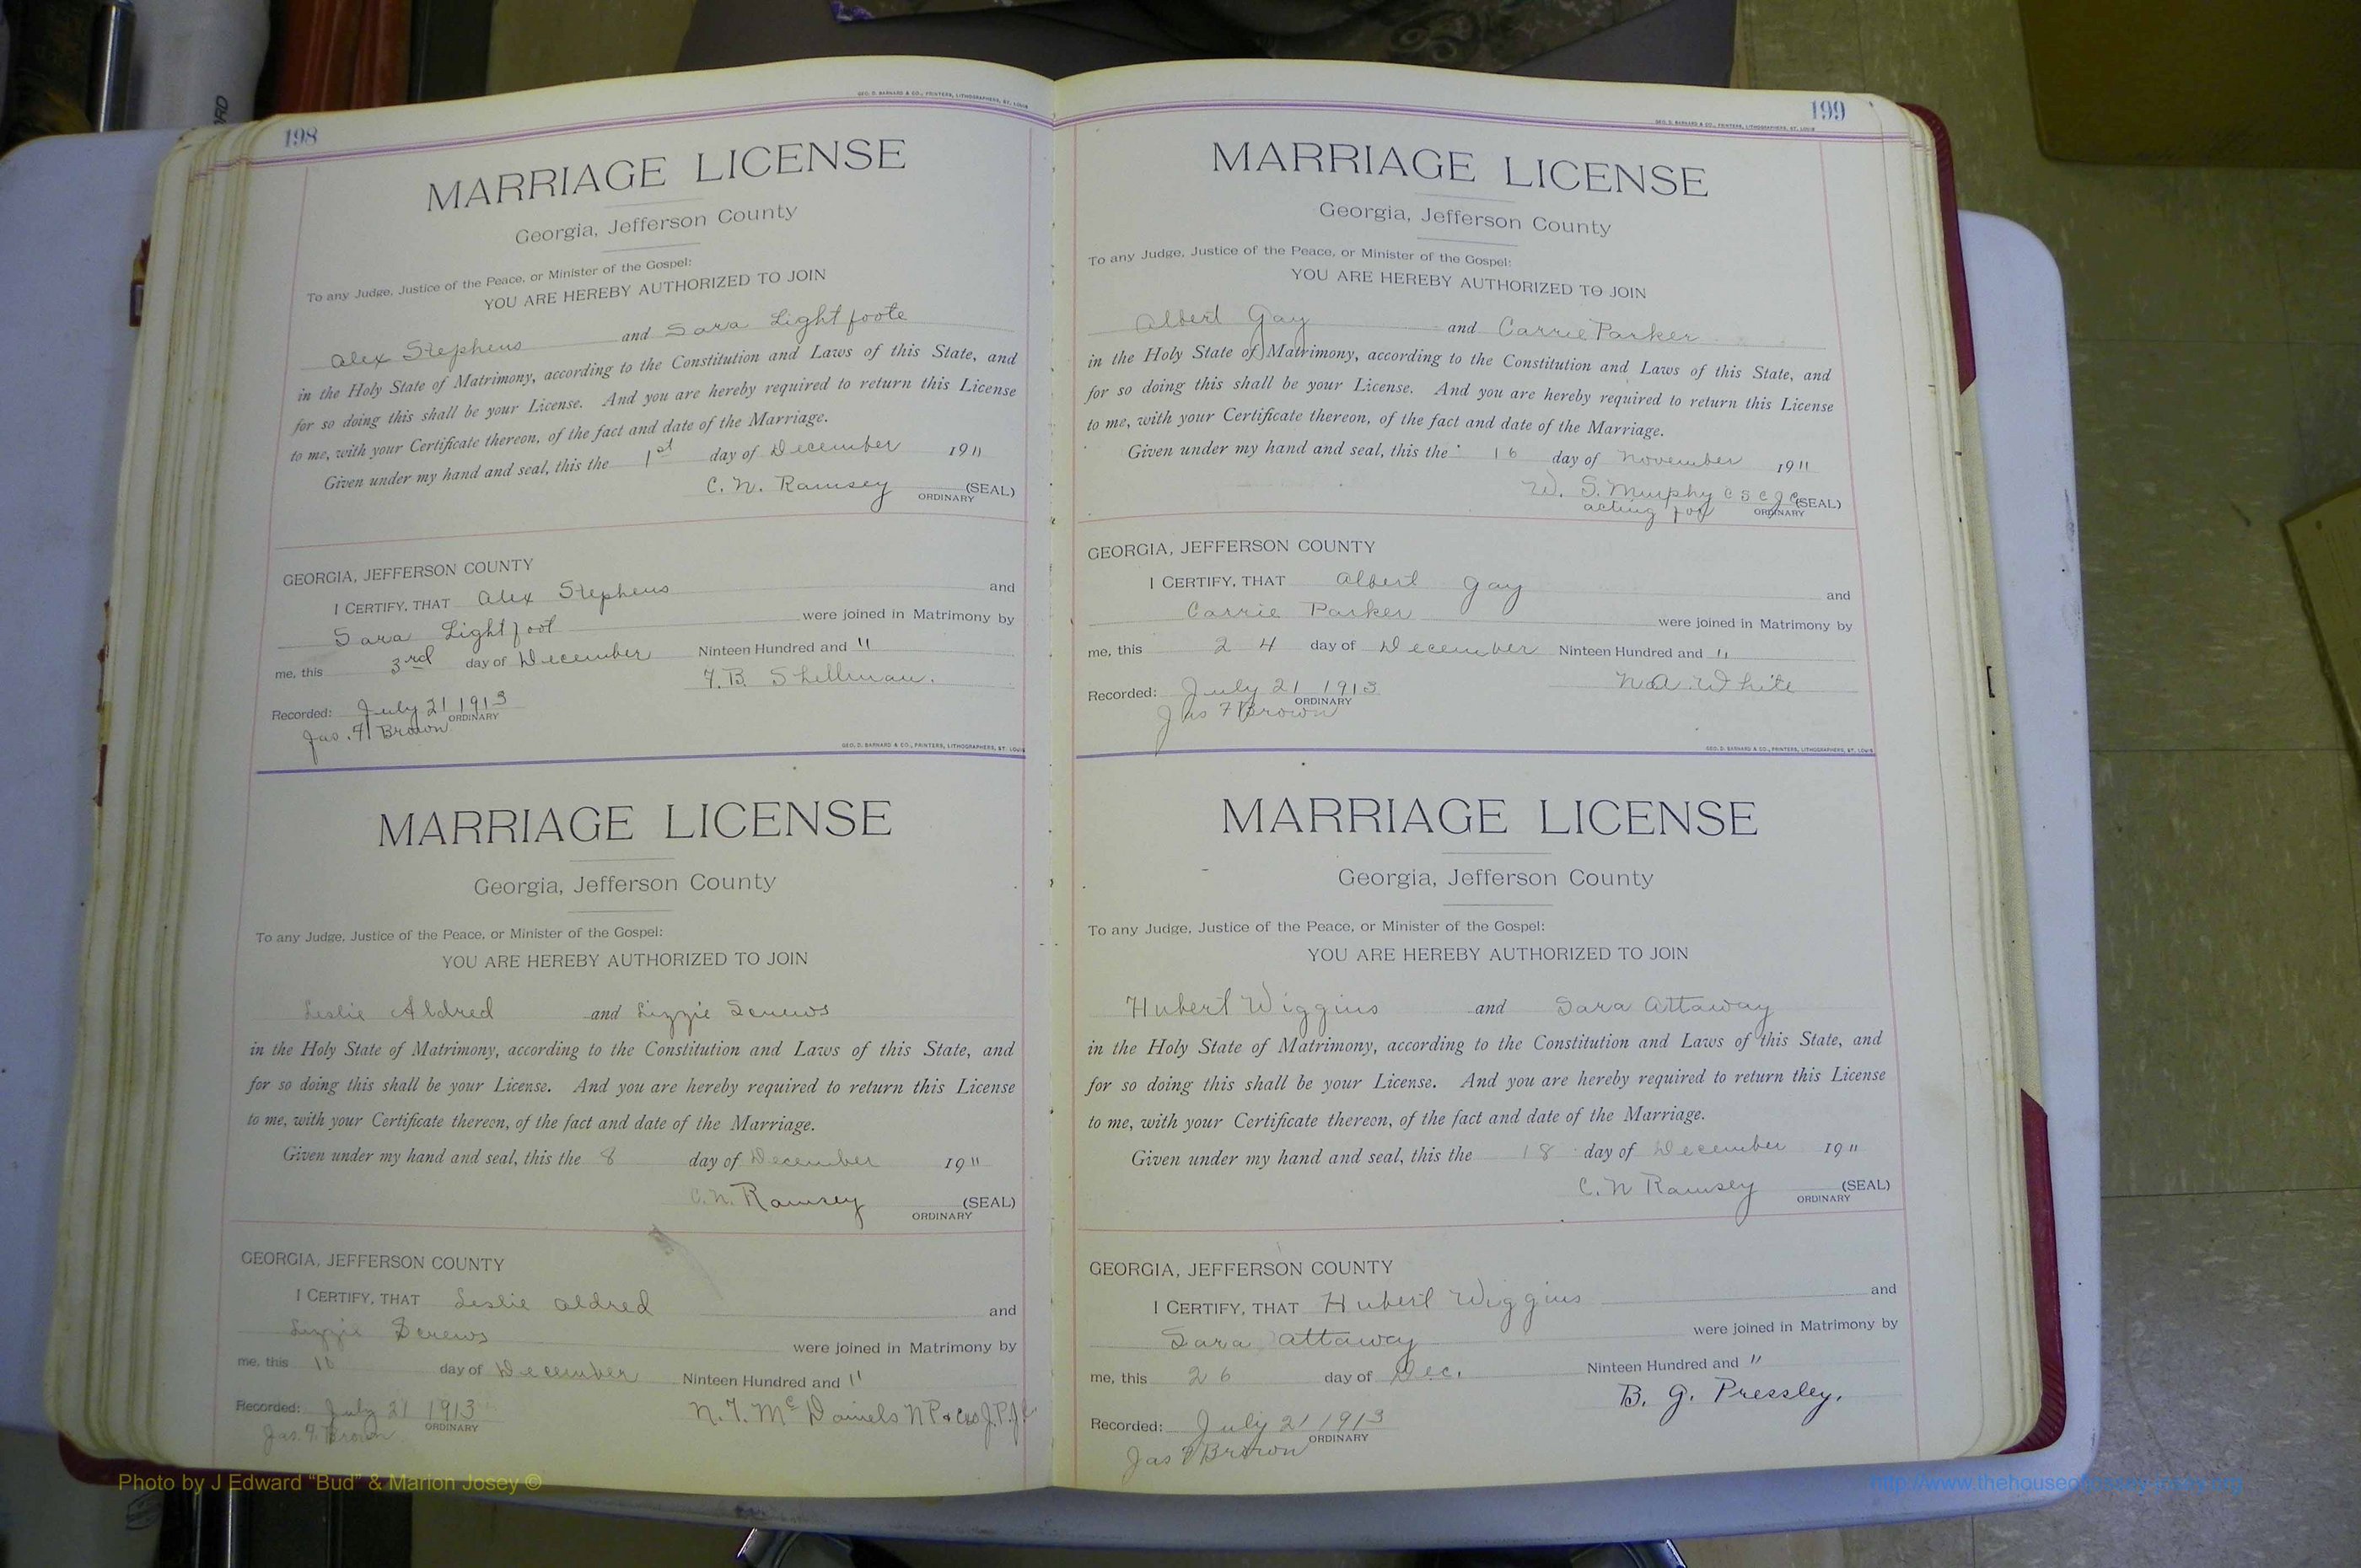 GEO. D. BARNARD & CO., PRINTERS, LITHOGRAPHERS, ST. LOUIS
198
MARRIAGE LICENSE
Georgia, Jefferson County
To any Judge, Justice of the Peace, or Minister of the Gospel:
YOU ARE HEREBY AUTHORIZED TO JOIN
Alex Stephens and Sara Lightfoote
in the Holy State of Matrimony, according to the Constitution and Laws of this State, and
for so doing this shall be your License. And you are hereby required to return this License
to me, with your Certificate thereon, of the fact and date of the Marriage.
Given under my hand and seal, this the 1st day of December 1911
C. N. Ramsey (SEAL)
ORDINARY
GEORGIA, JEFFERSON COUNTY
I CERTIFY, THAT Alex Stephens and
Sara Lightfoot were joined in Matrimony by
me, this 3rd day of December Ninteen Hundred and 11
F. B. Shellman.
Recorded: July 21 1913
ORDINARY
Jas. F. Brown
GEO. D. BARNARD & CO., PRINTERS, LITHOGRAPHERS, ST. LOUIS
MARRIAGE LICENSE
Georgia, Jefferson County
To any Judge, Justice of the Peace, or Minister of the Gospel:
YOU ARE HEREBY AUTHORIZED TO JOIN
Leslie Aldred and Lizzie Screws
in the Holy State of Matrimony, according to the Constitution and Laws of this State, and
for so doing this shall be your License. And you are hereby required to return this License
to me, with your Certificate thereon, of the fact and date of the Marriage.
Given under my hand and seal, this the 8 day of December 1911
C. N. Ramsey (SEAL)
ORDINARY
GEORGIA, JEFFERSON COUNTY
I CERTIFY, THAT Leslie Aldred and
Lizzie Screws were joined in Matrimony by
me, this day of December Ninteen Hundred and 11
N. T. McDaniels N P &
Recorded: July 21 1913
ORDINARY
Jas. F. Brown
199
GEO. D. BARNARD & CO., PRINTERS, LITHOGRAPHERS, ST. LOUIS
MARRIAGE LICENSE
Georgia, Jefferson County
To any Judge, Justice of the Peace, or Minister of the Gospel:
YOU ARE HEREBY AUTHORIZED TO JOIN
Albert Gay and Carrie Parker
in the Holy State of Matrimony, according to the Constitution and Laws of this State, and
for so doing this shall be your License. And you are hereby required to return this License
to me, with your Certificate thereon, of the fact and date of the Marriage.
Given under my hand and seal, this the 16 day of November 1911
W. S. Murphy C S C J C (SEAL)
acting for ORDINARY
GEORGIA, JEFFERSON COUNTY
I CERTIFY, THAT Albert Gay and
Carrie Parker were joined in Matrimony by
me, this 24 day of December Ninteen Hundred and 11
N. A. White
Recorded: July 21 1913
ORDINARY
Jas F Brown
GEO. D. BARNARD & CO., PRINTERS, LITHOGRAPHERS, ST. LOUIS
MARRIAGE LICENSE
Georgia, Jefferson County
To any Judge, Justice of the Peace, or Minister of the Gospel:
YOU ARE HEREBY AUTHORIZED TO JOIN
Hubert Wiggins and Sara Attaway
in the Holy State of Matrimony, according to the Constitution and Laws of this State, and
for so doing this shall be your License. And you are hereby required to return this License
to me, with your Certificate thereon, of the fact and date of the Marriage.
Given under my hand and seal, this the 18 day of December 1911
C. N Ramsey (SEAL)
ORDINARY
GEORGIA, JEFFERSON COUNTY
I CERTIFY, THAT Hubert Wiggins and
Sara Attaway were joined in Matrimony by
me, this 26 day of Dec. Ninteen Hundred and 11
B. G. Pressley.
Recorded: July 21 1913
ORDINARY
Jas F Brown
Photo by J Edward “Bud” & Marion Josey ©